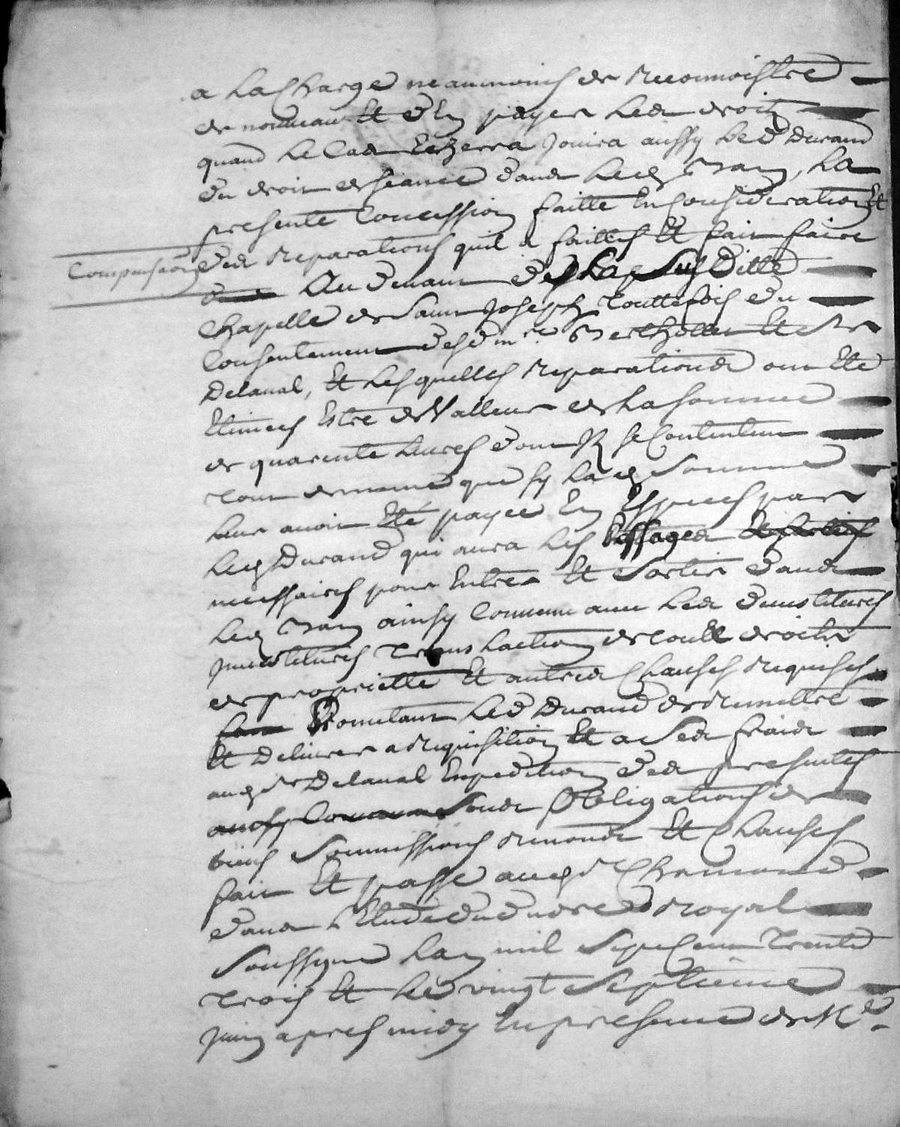 a la charge neanmoins de reconnoistre
de nouveau et d'en payer led droit
quand le cas echerra Jouira aussy led Durand
du droit de seance dans led banq, la
presente Concession faitte En Consideration Et
Compensation
des reparations quil a faittes et fait faire
au devant de la susditte
Chapelle de Saint Joseph touttefois du
Consentement desd mre Berthollet et Sr
Delaval, Et lesquelles reparations ont Eté
Etimees Estre de Valleur de la somme
de quarente livres dont Ils se Contentent
tout de meme que sy lad Somme
leur avoit Eté payée En Especes par
led Durand qui aura les passages
necessaires pour Entrer Et Sortir dans
led banq ainsy Comme avec led devestitures
Investitures translaction de tout droits
de proprietté Et autres Clauses requises
Promettant led Durand de remettre
Et Delivrer a requisition Et a Ses frais
aud Sr Delaval Expedition des presentes
sous Obligations de
biens Soumissions renonce Et Clauses
fait Et passé aud St Chamond
dans l'Etude du Nore Royal
Soussigné l'an mil Sept Cent trente
trois Et le vingt Septieme
Juin apres midy En presence de Me